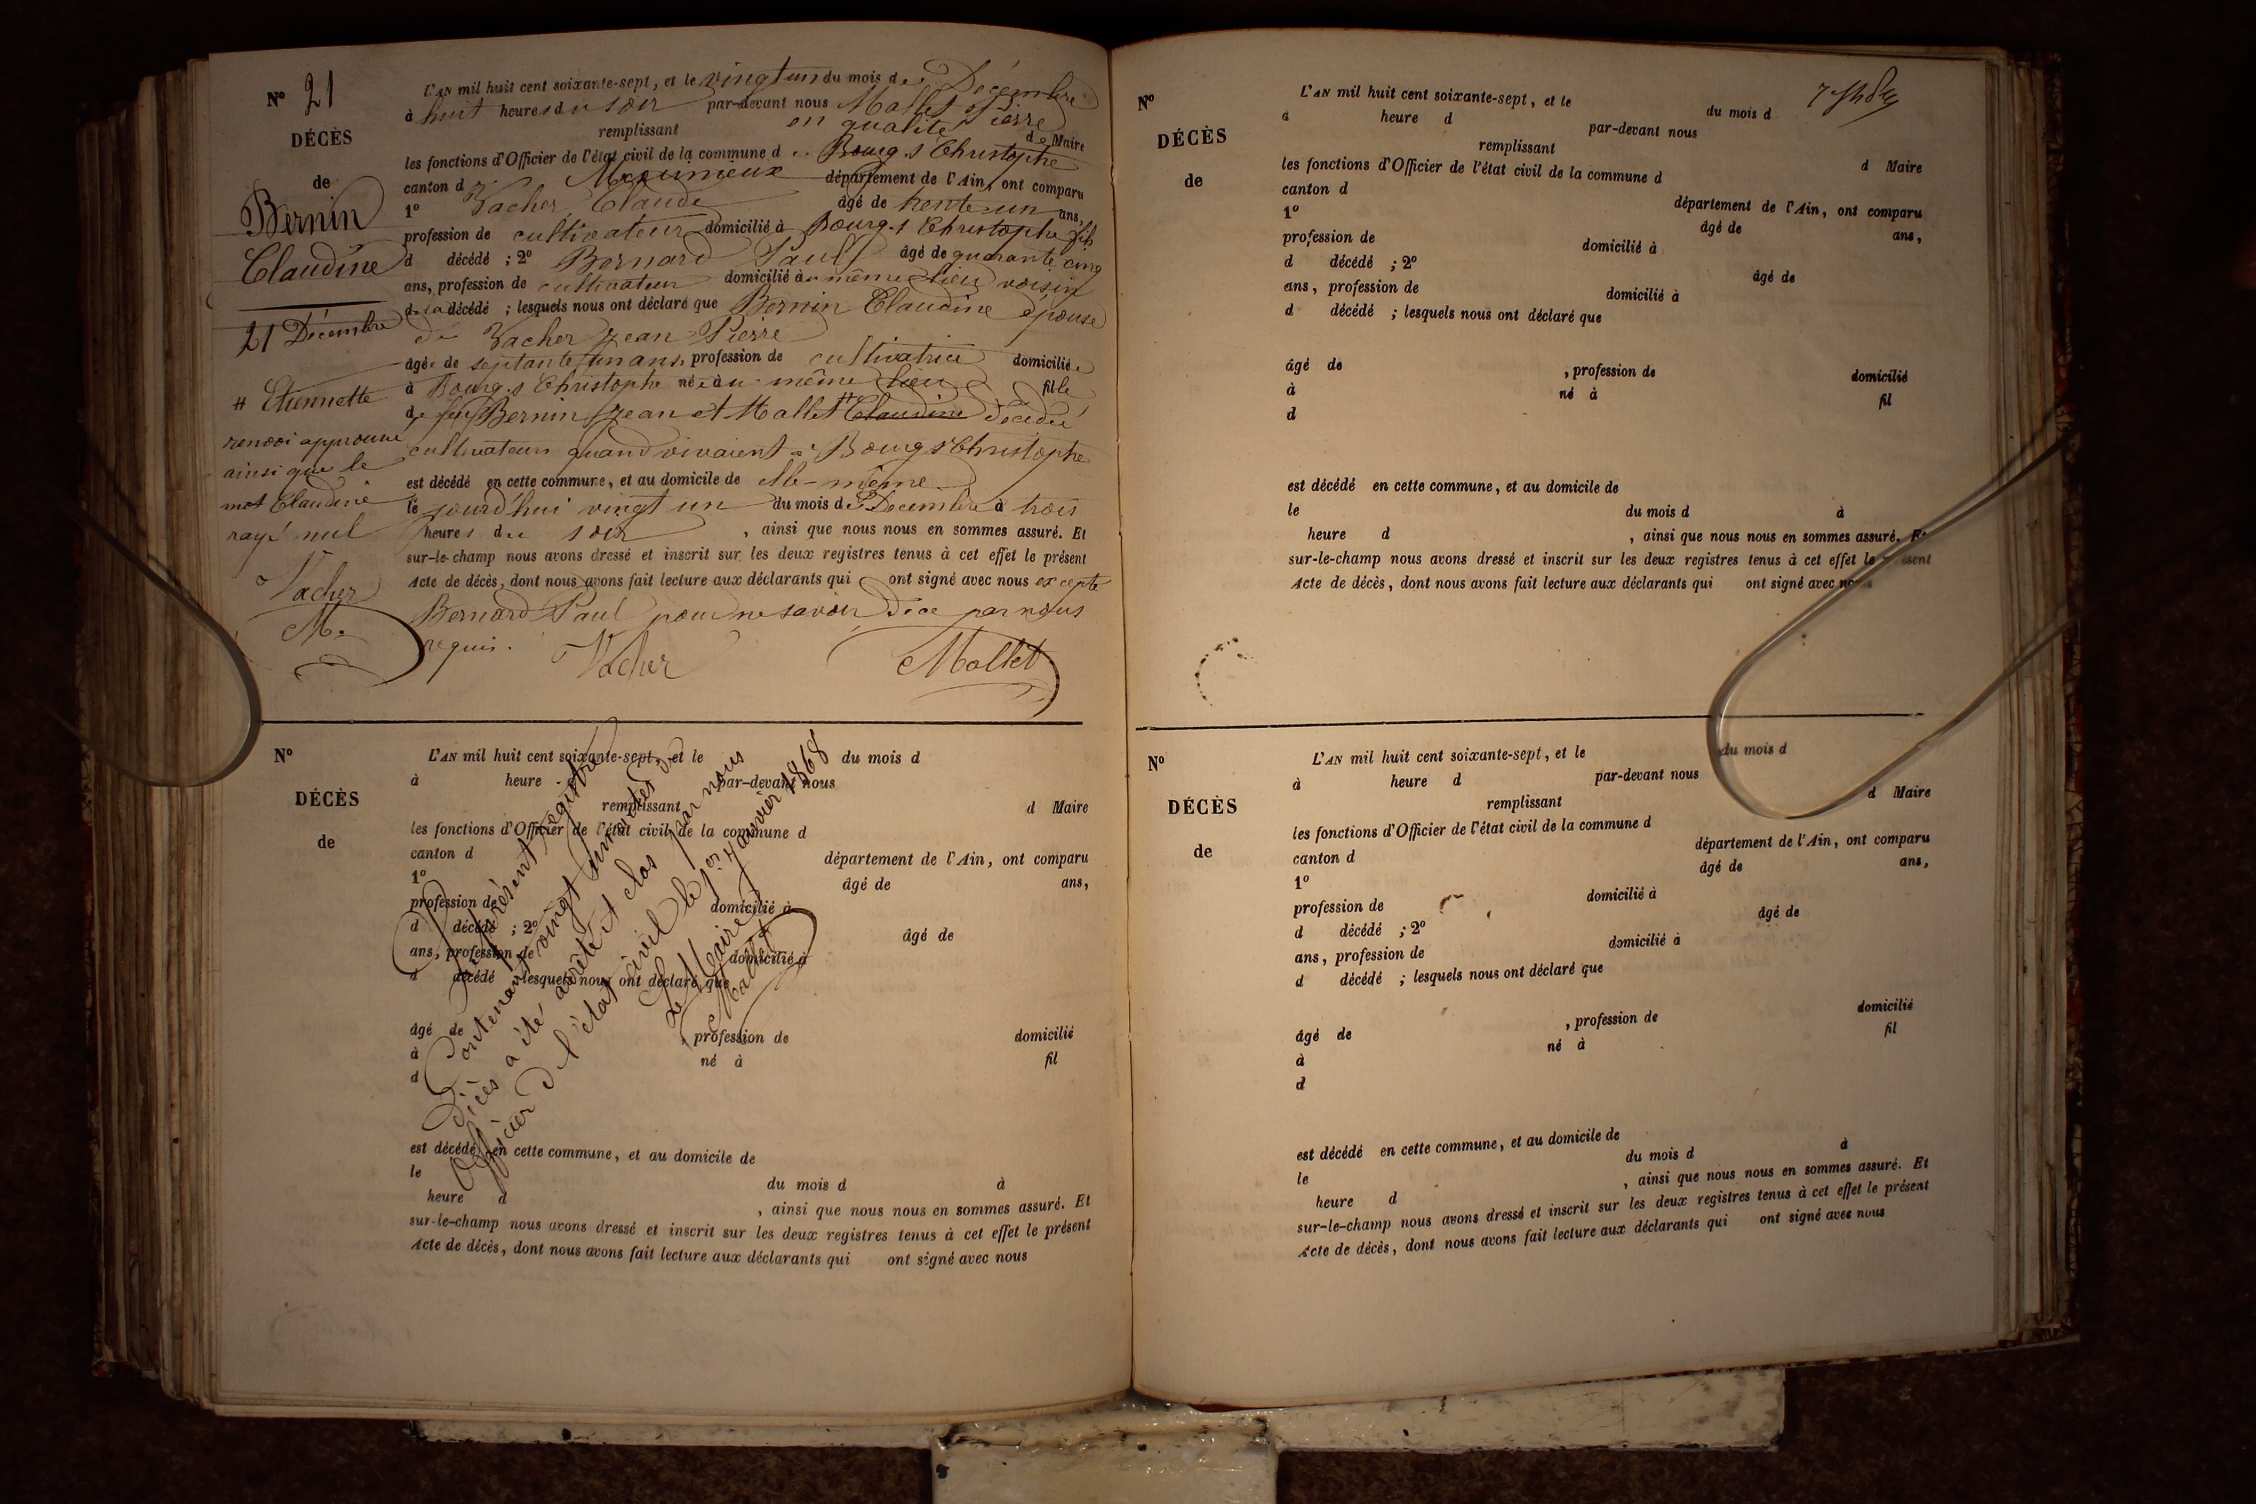 N° 21
DÉCÈS
de
Bernin
Claudine
21 Décembre
# Etiennette
renvoi approuvé
ainsi que le
mot Claudine
rayé nul
Vacher
M.
L'AN mil huit cent soixante-sept, et le vingt un du mois de Décembre
à huit heures du soir par-devant nous Mallet Pierre
remplissant en qualité de Maire
les fonctions d'Officier de l'état civil de la commune de Bourg St Christophe
canton d Meximieux département de l'Ain, ont comparu
1° Vacher Claude âgé de trente un ans,
profession de cultivateur domicilié à Bourg St Christophe fils
d décédé ; 2° Bernard Paul âgé de quarante cinq
ans, profession de cultivateur domicilié au même lieu voisin
de la décédé ; lesquels nous ont déclaré que Bernin Claudine épouse
de Vacher Jean Pierre
âgée de septante un ans, profession de cultivatrice domiciliée
à Bourg St Christophe née au même lieu fille
de feu Bernin Jean et Mallet # Claudine décédés
cultivateurs quand vivaient à Bourg St Christophe
est décédé en cette commune, et au domicile de elle-même
le jourd'hui vingt un du mois de Décembre à trois
heures du soir , ainsi que nous nous en sommes assuré. Et
sur-le-champ nous avons dressé et inscrit sur les deux registres tenus à cet effet le présent
Acte de décès, dont nous avons fait lecture aux déclarants qui ont signé avec nous excepté
Bernard Paul pour ne savoir de ce par nous
requis.
Vacher Mallet
N°
DÉCÈS
de
L'AN mil huit cent soixante-sept, et le du mois d
à heure par-devant nous
remplissant d Maire
les fonctions d'Officier de l'état civil de la commune d
canton d département de l'Ain, ont comparu
1° âgé de ans,
profession de domicilié à
d décédé ; 2° âgé de
ans, profession de domicilié à
d décédé lesquels nous ont déclaré que
âgé de profession de domicilié
à né à fil
d
est décédé en cette commune, et au domicile de
le du mois d à
heure d , ainsi que nous nous en sommes assuré. Et
sur-le-champ nous avons dressé et inscrit sur les deux registres tenus à cet effet le présent
Acte de décès, dont nous avons fait lecture aux déclarants qui ont signé avec nous
Le présent registre
Contenant vingt un actes de
Décès a été arrêté et clos par nous
Officier de l'état civil le 1er Janvier 1868
Le Maire
Mallet
N°
DÉCÈS
de
L'AN mil huit cent soixante-sept, et le du mois d
à heure d par-devant nous
remplissant d Maire
les fonctions d'Officier de l'état civil de la commune d
canton d département de l'Ain, ont comparu
1° âgé de ans,
profession de domicilié à
d décédé ; 2° âgé de
ans, profession de domicilié à
d décédé ; lesquels nous ont déclaré que
âgé de , profession de domicilié
à né à fil
d
est décédé en cette commune, et au domicile de
le du mois d à
heure d , ainsi que nous nous en sommes assuré. Et
sur-le-champ nous avons dressé et inscrit sur les deux registres tenus à cet effet le présent
Acte de décès, dont nous avons fait lecture aux déclarants qui ont signé avec nous
N°
DÉCÈS
de
L'AN mil huit cent soixante-sept, et le du mois d
à heure d par-devant nous
remplissant d Maire
les fonctions d'Officier de l'état civil de la commune d
canton d département de l'Ain, ont comparu
1° âgé de ans,
profession de domicilié à
d décédé ; 2° âgé de
ans, profession de domicilié à
d décédé ; lesquels nous ont déclaré que
âgé de , profession de domicilié
à né à fil
d
est décédé en cette commune, et au domicile de
le du mois d à
heure d , ainsi que nous nous en sommes assuré. Et
sur-le-champ nous avons dressé et inscrit sur les deux registres tenus à cet effet le présent
Acte de décès, dont nous avons fait lecture aux déclarants qui ont signé avec nous